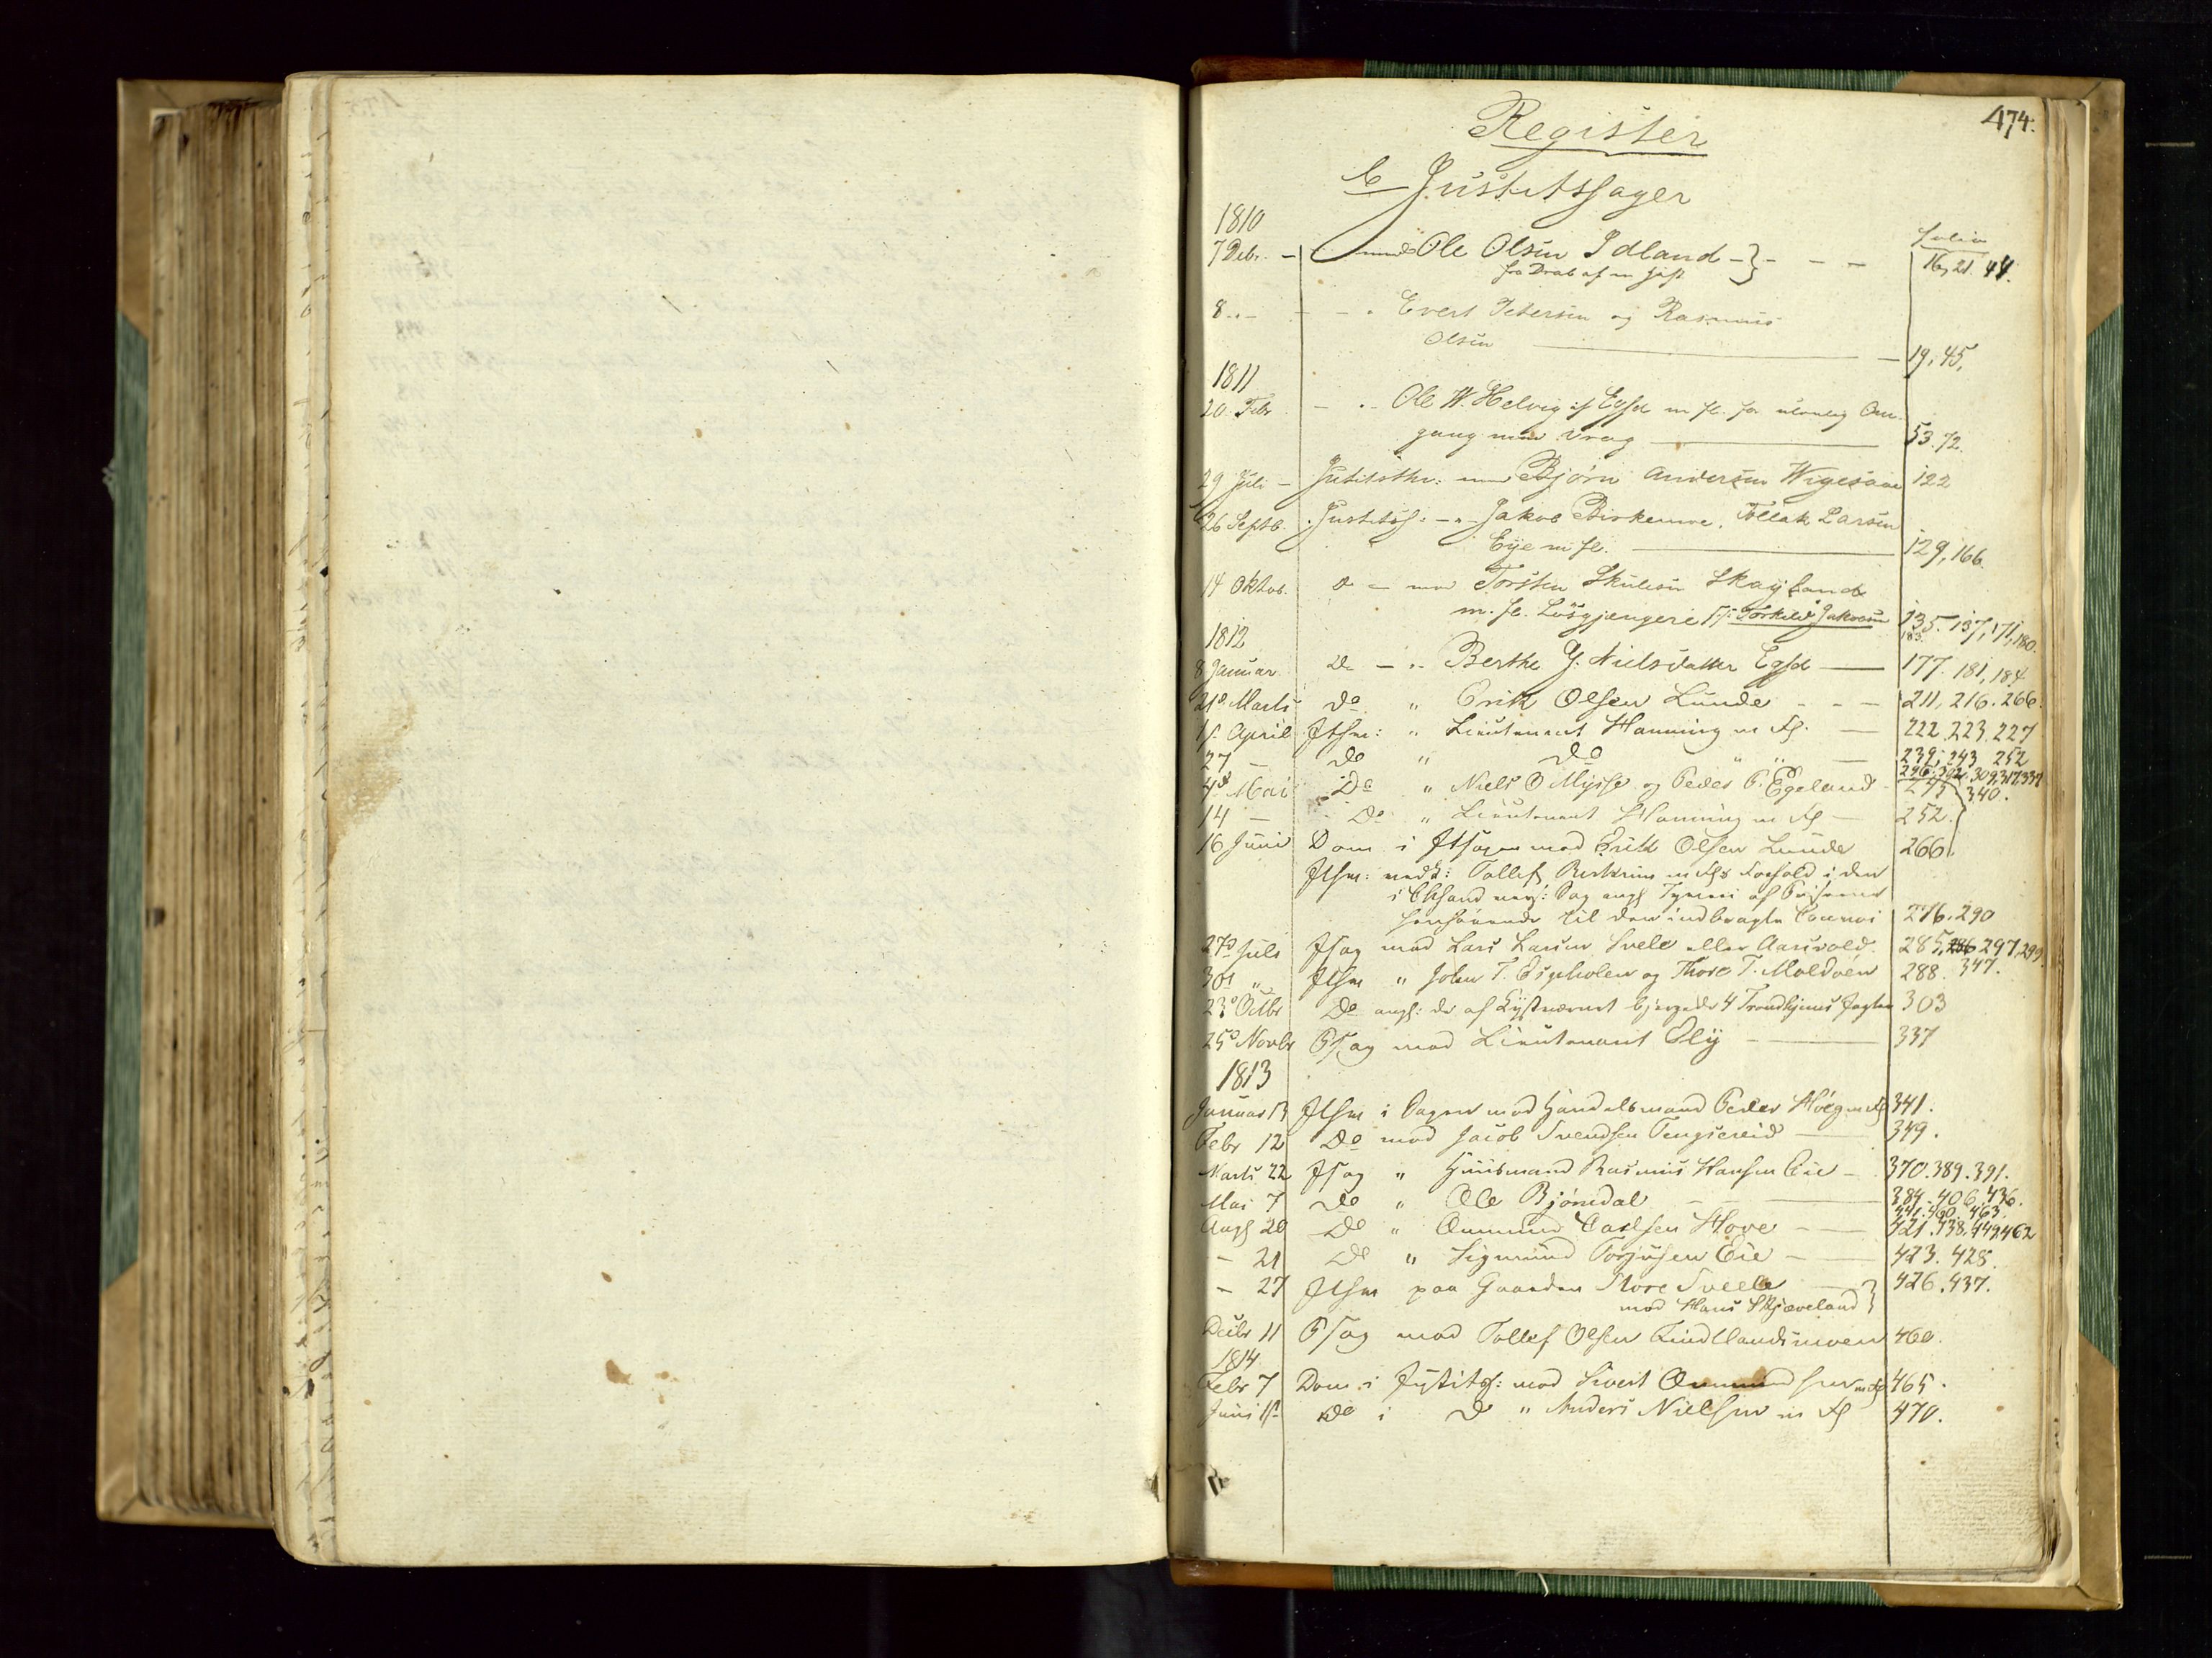 474.
Register
Justitssager
1810
folio
7 Debr. – mod Ole Olsen Idland – 16, 21. 44.
for Drab af en
8 " – – " Evert Petersen og Rasmus
Olsen – 19, 45,
1811
20 Febr. – " Ole W. Helvig af Egsd m fl. for ulovlig Om-
gang med Vrag 53. 72.
29 Juli – mod Bjørn Andersen 122
26 Septb. Justitss: – " – Jakob Birkemoe, Tollak Larsen
Eye m fl. 129, 166.
14 Oktob. d – mod Torsten Skulesen Skagland
m. fl. Løsgjængere Torkild Jakobsen 135. 137, 171, 180.
183.
1812
8 Januar D – " Berthe G. Nielsdatter Egsd – 177. 181, 184
21d Marts do " Erik Olsen Lunde – – – 211, 216. 266.
1st April Jthm: " Lieutenant Hanning m fl. – 222. 223. 227
27 – do " do " " – 239, 243 252
296. 302. 309, 317, 337
4d Mai Do " Niels O Mysse og Peder P. Egeland – 245 340.
14 – Do " Lieutenant Hanning m fl – 252.
16 Juni Dom i Jtsagen mod Erik Olsen Lunde 266.
Jthm: vedk: Tollef m fls Forhold i den
i Sag angl af
henhørende til den indbragte 276. 290
27d Juli Jsag mod Lars Larsen Svele eller Aarsvold. 285, 286 297, 299.
30d " Jthm " John T. Espeholen og Thore T. Moldoen 288. 347.
23d Octbr Do angl: de af Kystværnet bjergede 4 Trondhjems Jagter 303
25d Novbr Jsag mod Lieutenant Bly – 337
1813
Januar 13 Jthm i Sagen mod Handelsmand Peder Høeg m fl 341.
Febr 12 Do mod Jacob Svendsen Tengsereid – 349.
Marts 22 Jsag " Huusmand Rasmus Hansen Eie – 370. 389. 391.
Mai 7 do " Ole Bjørndal – 384. 406. 436.
441. 460. 463.
Augs 20 Do " Ommund Carlsen Hove – 421. 438. 449, 462
– 21 Do " Sigmund Torjusen Eie – 423. 428.
– 27 Jthm paa Gaarden Store Svelle – 426. 437.
mod Hans Skjæveland
Decbr 11 Jsag mod Tollef Olsen Lindlandsmoen 460.
1814
Febr 7 Dom i Justits: mod Sivert Ommundsen m fl 465.
Juni 1st do i d " Anders Nielsen m fl 470.